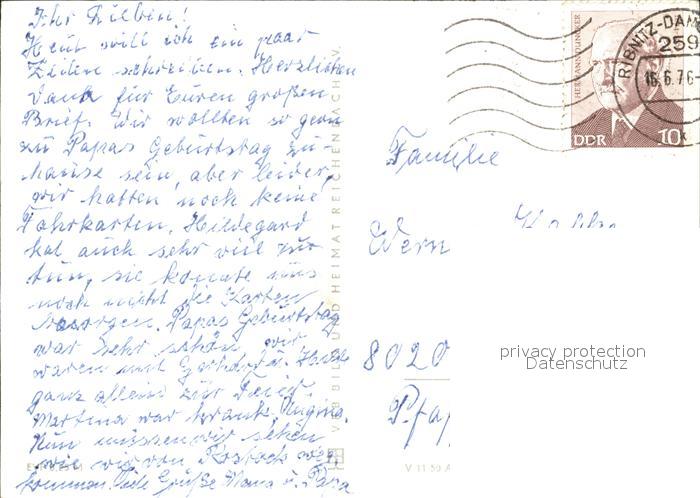 Ihr Lieben!
Heut will ich ein paar
Zeilen schreiben. Herzlichen
Dank für Euren großen
Brief. Wir wollten so gern
zu Papas Geburtstag zu-
hause sein, aber leider,
wir hatten noch keine
Fahrkarten. Hildegard
hat auch sehr viel zu
tun, sie konnte uns
noch nicht die Karten
besorgen. Papas Geburtstag
war sehr schön, wir
waren mit
ganz allein zur Feier.
Martina war krank, Angina.
Nun müssen wir sehen
wie wir von Rostock weg
kommen. Viele Grüße Mama u. Papa
VEB BILD UND HEIMAT REICHENBACH I. V.
RIBNITZ-DAM
259
16.6.76
HERMANN DUNCKER
DDR 10
Familie
Wern
8020
privacy protection
Datenschutz
V 11 50 A